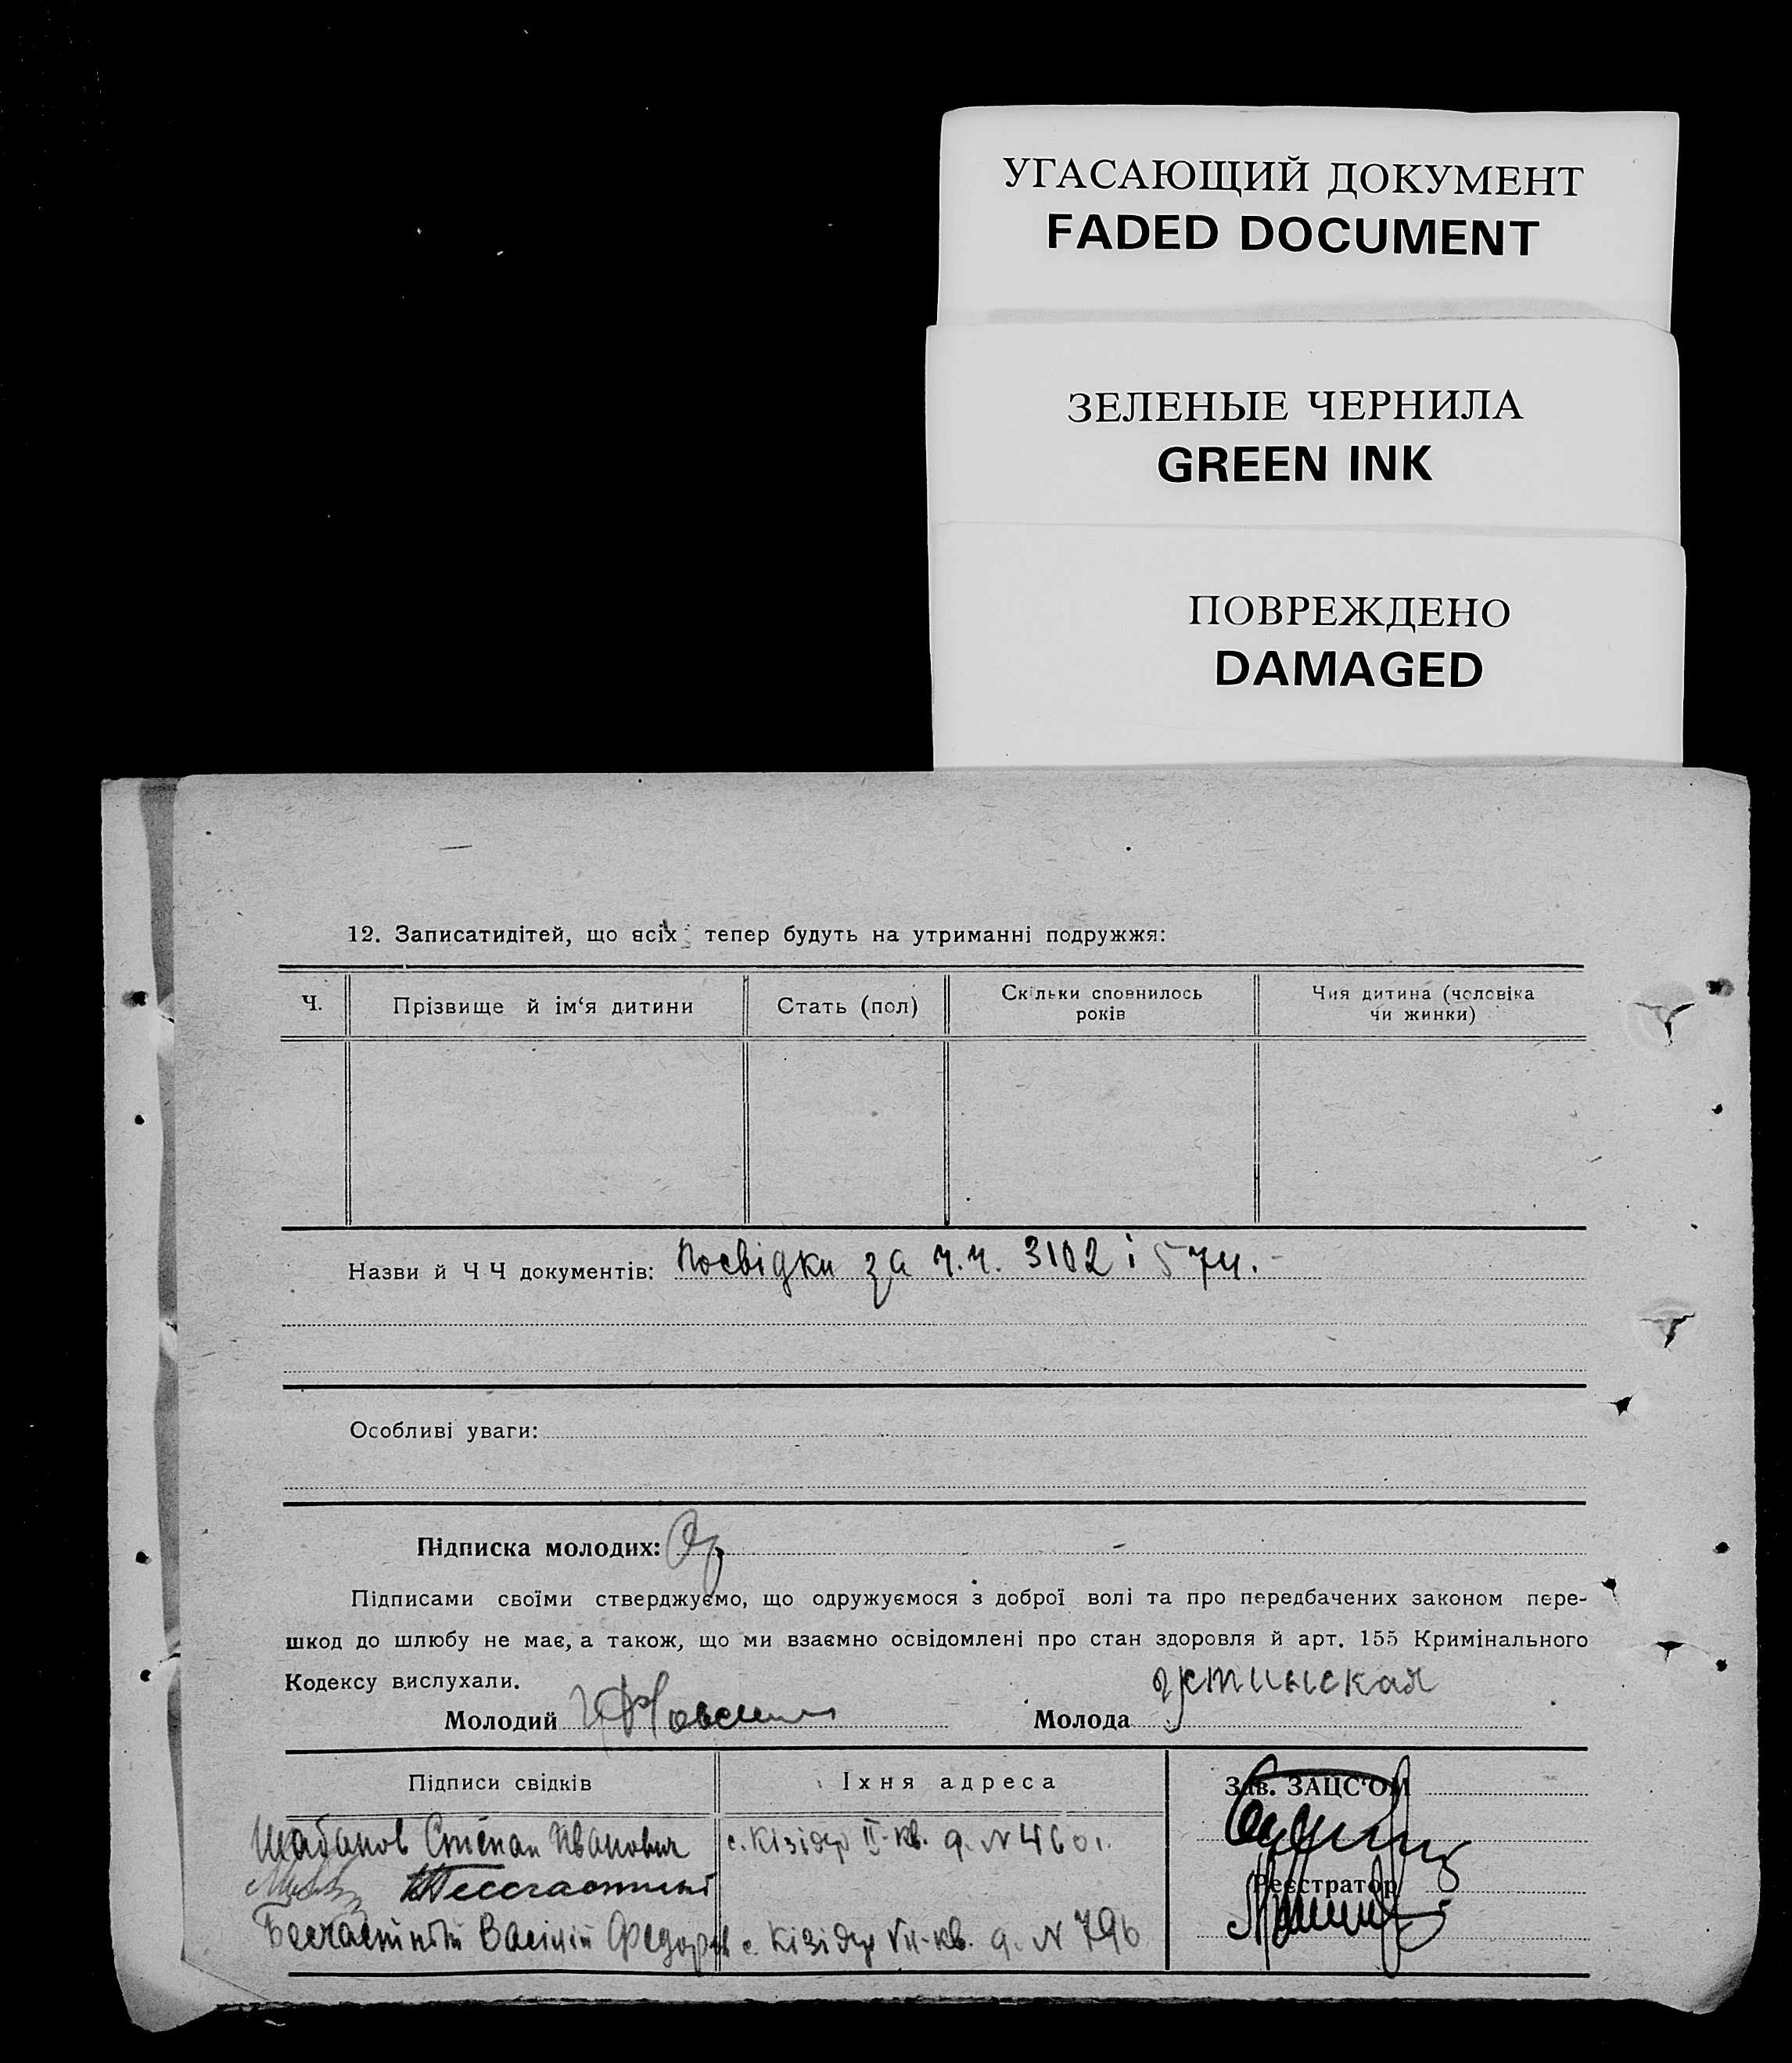 УГАСАЮЩИЙ ДОКУМЕНТ
FADED DOCUMENT
ЗЕЛЕНЫЕ ЧЕРНИЛА
GREEN INK
ПОВРЕЖДЕНО
DAMAGED
12. Записатидітей, що всіх тепер будуть на утриманні подружжя:
Ч. Прізвище й ім‘я дитини Стать (пол) Скільки сповнилось років Чия дитина (чоловіка чи жинки)
Назви й Ч Ч документів: Посвідки за ч.ч. 3102 і 574.
Особливі уваги:
Підписка молодих:
Підписами своїми стверджуємо, що одружуємося з доброї волі та про передбачених законом пере-
шкод до шлюбу не має, а також, що ми взаємно освідомлені про стан здоровля й арт. 155 Кримінального
Кодексу вислухали.
Молодий Молода
Підписи свідків Їхня адреса Зав. ЗАЦС‘ОМ
Шабанов Степан Іванович с. Кізідер ІІ-кв. д. N
Реєстратор
Бесчастний Василій Федоров с. Кізідер VII-кв. д. N 796